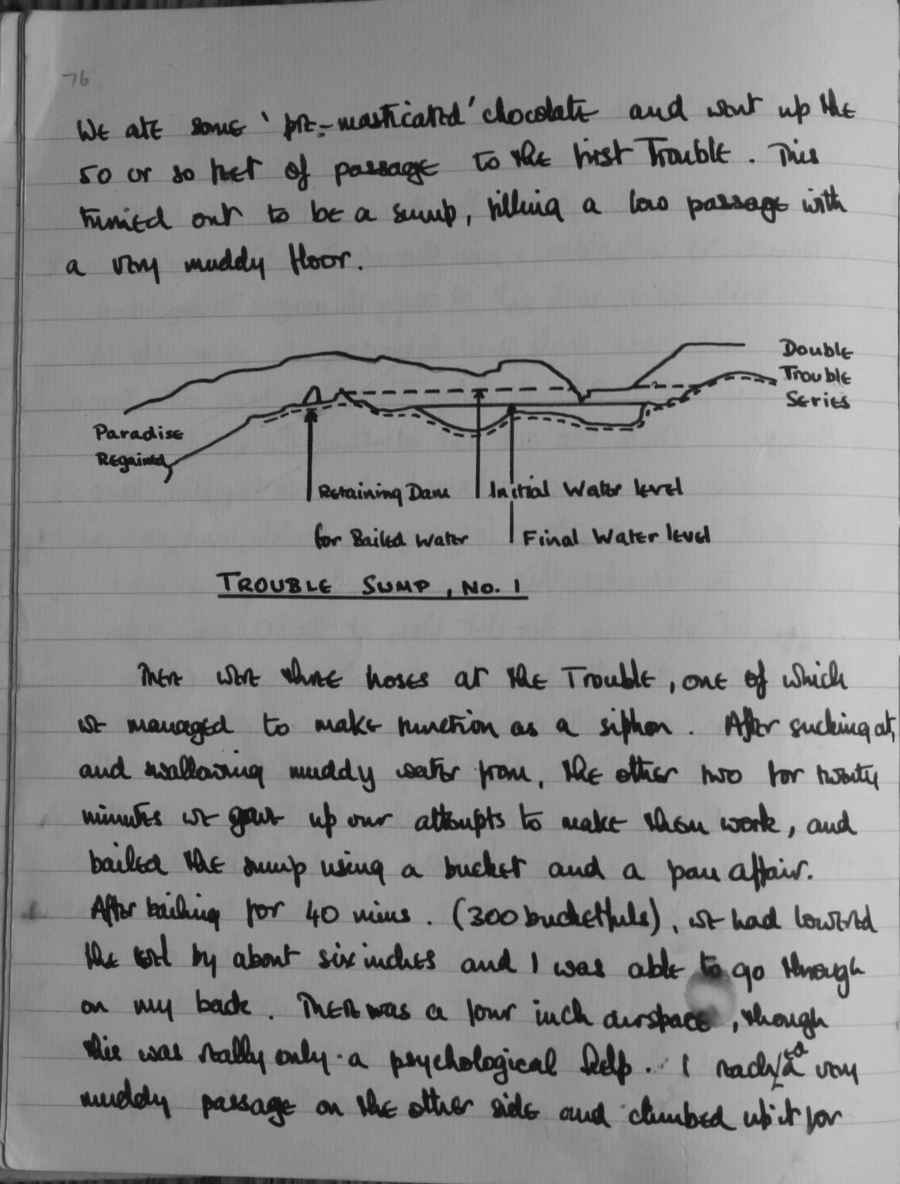 76
We ate some 'pre-masticated' chocolate and went up the
50 or so feet of passage to the first Trouble. This
turned out to be a sump, filling a low passage with
a very muddy floor.
Double
Trouble
Series
Paradise
Regained
Retaining Dam
for Bailed Water
Initial Water level
Final Water level
TROUBLE SUMP, NO. 1
There were three hoses at the Trouble, one of which
we managed to make function as a siphon. After sucking at,
and swallowing muddy water from, the other two for twenty
minutes we gave up our attempts to make them work, and
bailed the sump using a bucket and a pan affair.
After bailing for 40 mins. (300 bucketfuls), we had lowered
the level by about six inches and I was able to go through
on my back. There was a four inch airspace, though
this was really only a psychological help. I reached a very
muddy passage on the other side and climbed up it for